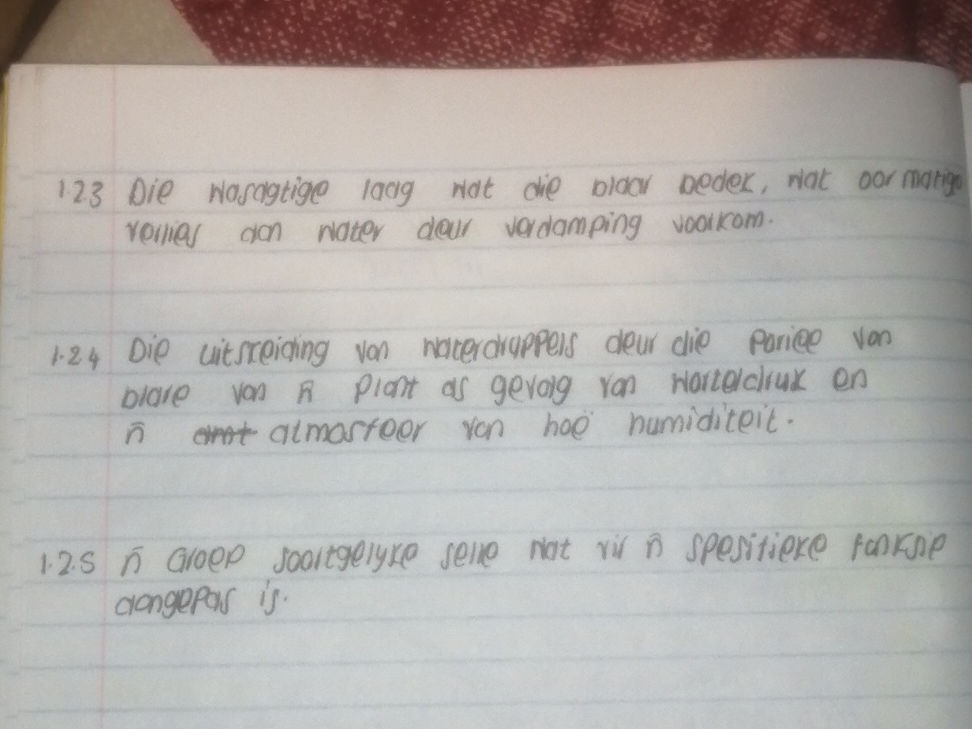 1.2.3 Die wasagtige laag wat die blaar bedek, wat oormatige
verlies aan water deur verdamping voorkom.
1.2.4 Die uitskeiding van waterdruppels deur die poriee van
blare van ñ plant as gevolg van worteldruk en
ñ atmosfeer van hoë humiditeit.
1.2.5 ñ Groep soortgelyke selle wat vir ñ spesifieke funksie
aangepas is.